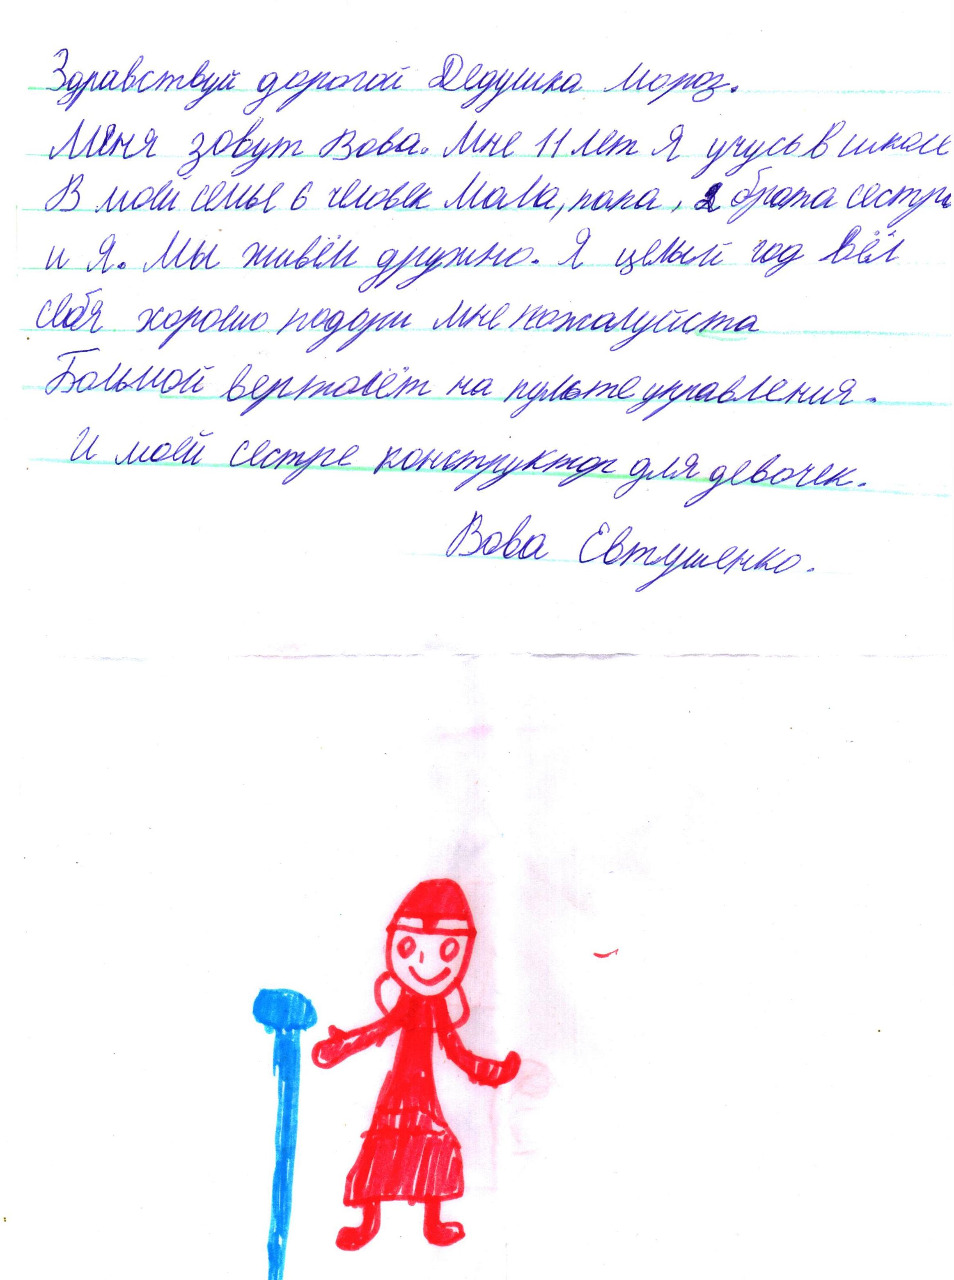 Здравствуй дорогой Дедушка Мороз.
Меня зовут Вова. Мне 11 лет Я учусь в школе
В моей семье 6 человек Мама, папа, 2 брата сестра
и Я. Мы живём дружно. Я целый год вёл
себя хорошо подари мне пожалуйста
Большой вертолёт на пульте управления.
И моей сестре конструктор для девочек.
Вова Евтушенко.